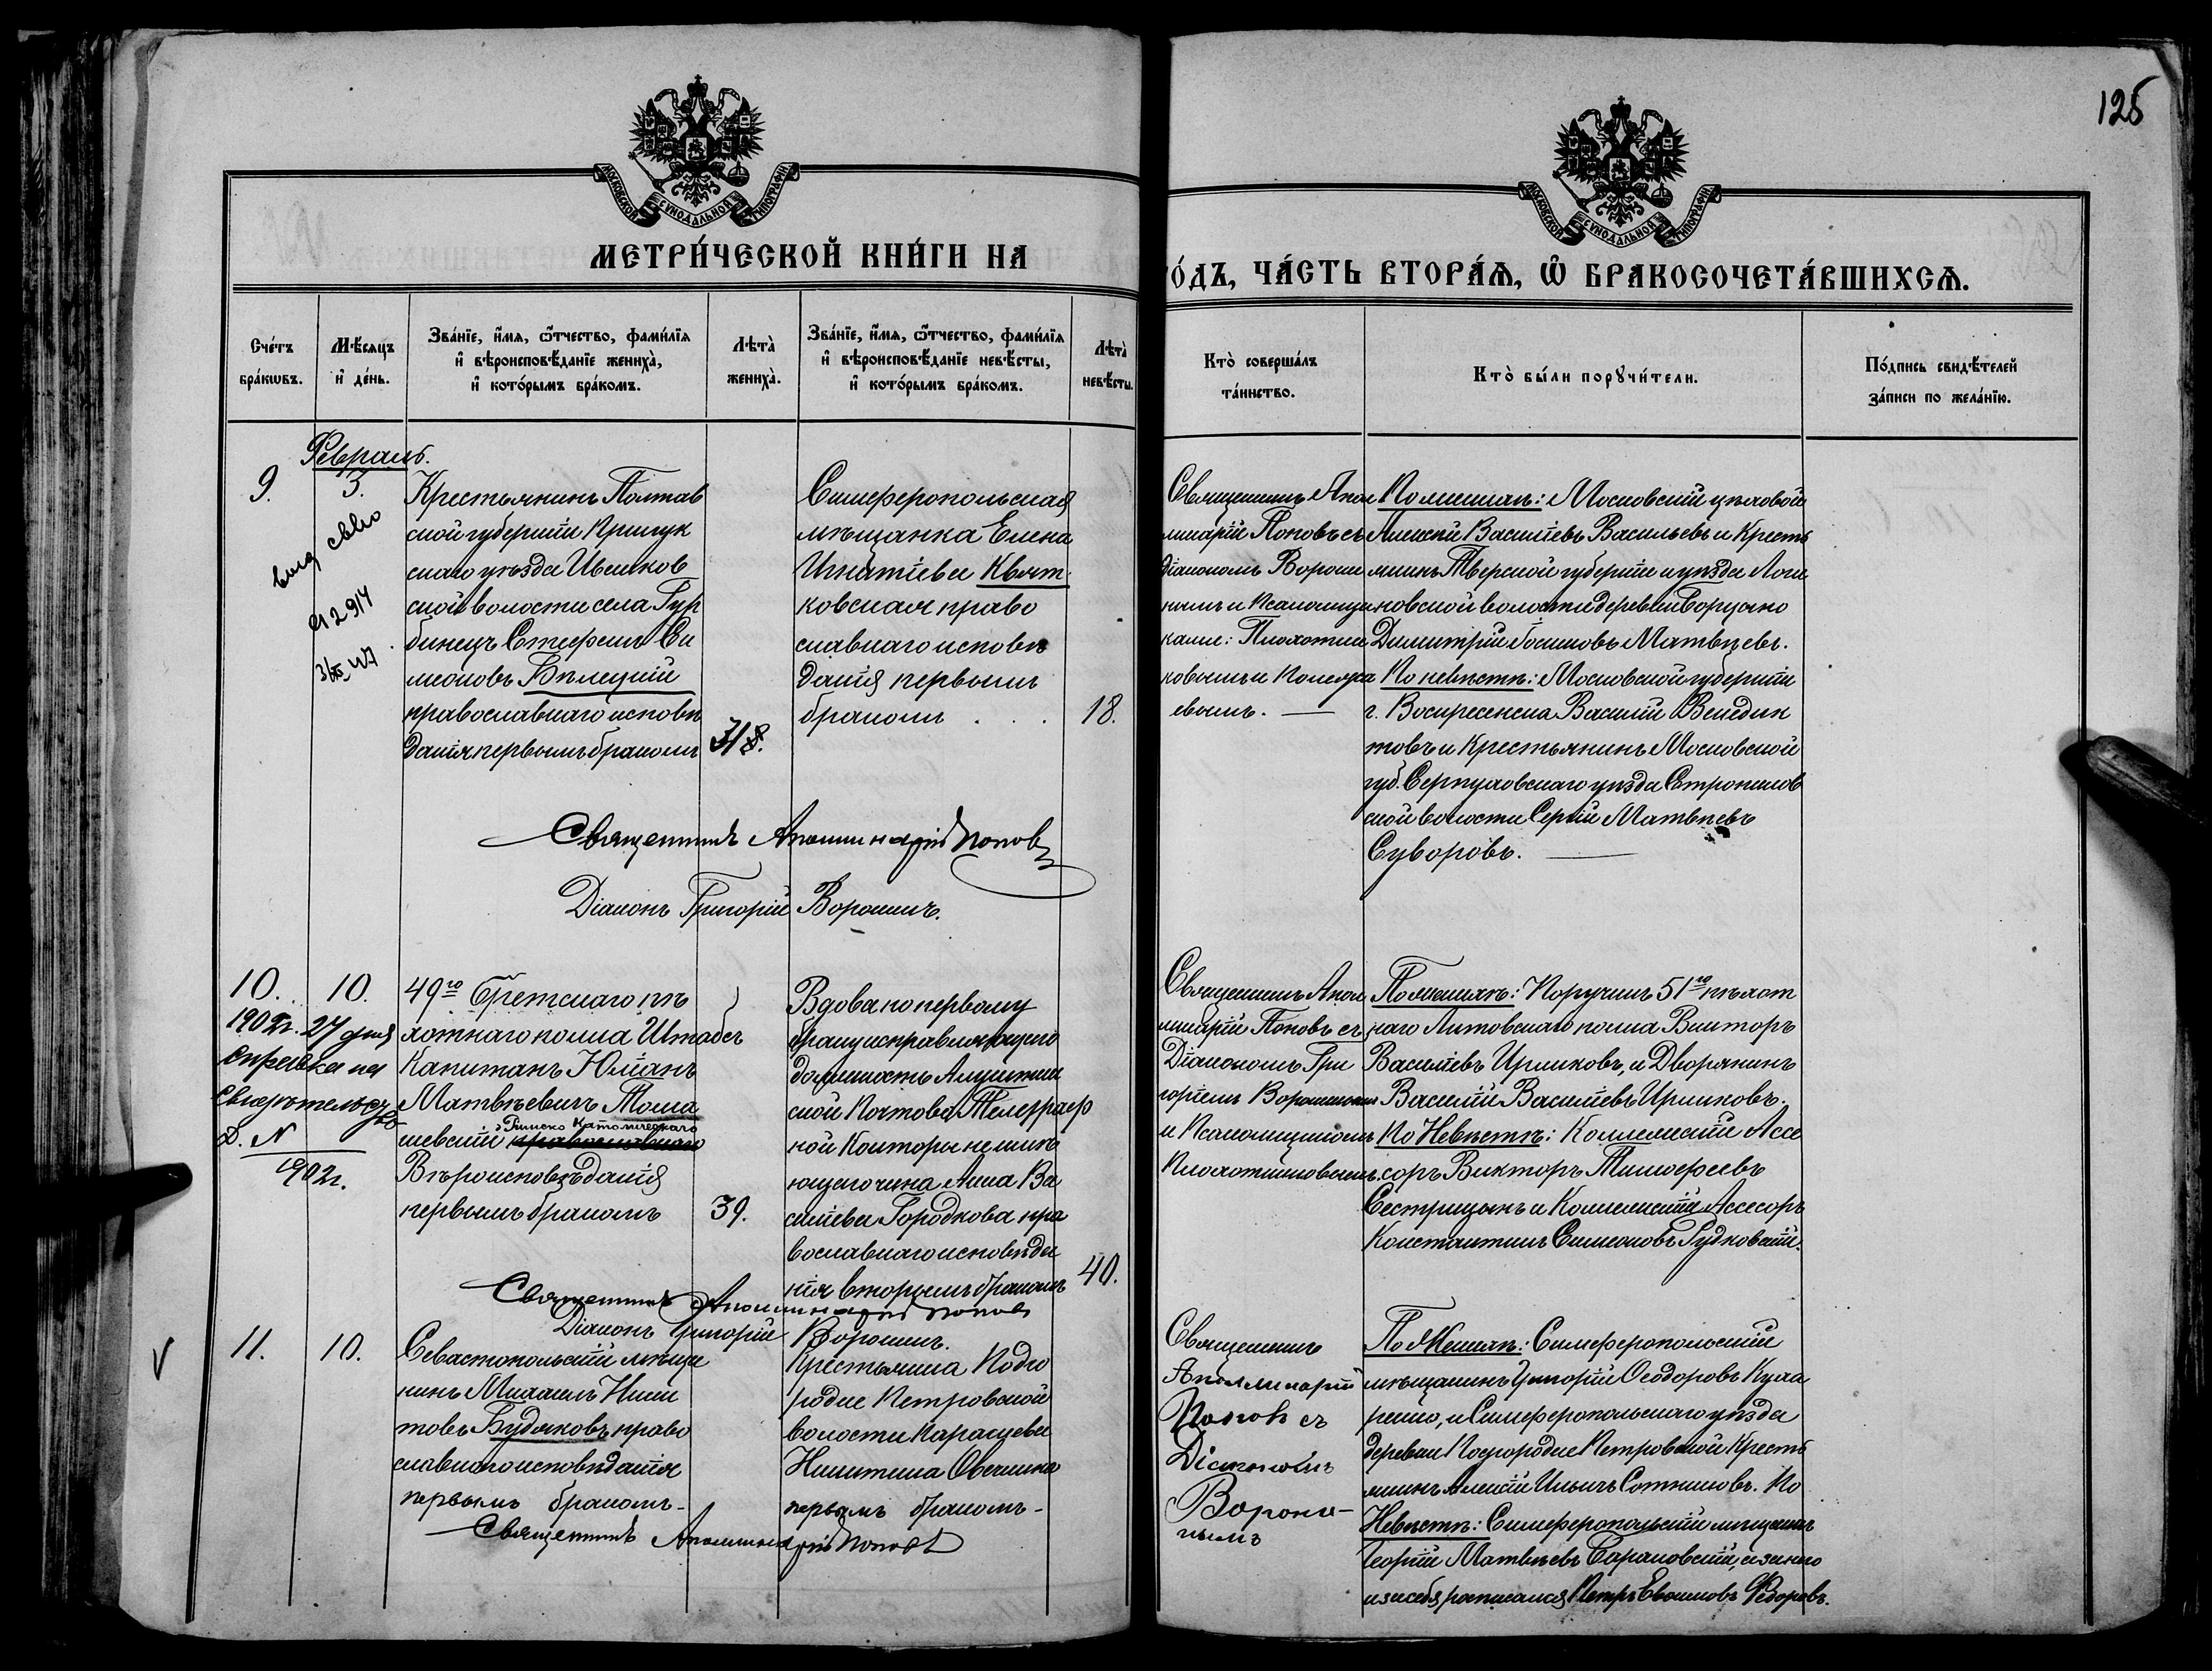 125
МОСКОВСКОЙ СѴНОДАЛЬНОЙ ТИПОГРАФІИ
МОСКОВСКОЙ СѴНОДАЛЬНОЙ ТИПОГРАФІИ
МЕТРИ́ЧЕСКОЙ КНИ́ГИ НА
ГО́ДЪ, ЧА́СТЬ ВТОРА́Ѧ, Ѽ БРАКОСОЧЕТА́ВШИХСѦ.
Сче́тъ
бра́кѡвъ.
Мѣ́сяцъ
и҆ де́нь.
Зва́нїе, и҆́мѧ, ѻ҆́тчество, фами́лїѧ
и҆ вѣроисповѣ́данїе жениха̀,
и҆ кото́рымъ бра́комъ.
Лѣта̀
жениха̀.
Зва́нїе, и҆́мѧ, ѻ҆́тчество, фами́лїѧ
и҆ вѣроисповѣ́данїе невѣ́сты,
и҆ кото́рымъ бра́комъ.
Лѣта̀
невѣ́сты.
Кто̀ соверша́лъ
та́инство.
Кто̀ бы́ли порꙋчи́тели.
По́дпись свидѣ́телей
за́писи по жела́нїю.
Февраль.
9.
3.
Крестьянинъ Полтав
ской губерніи Прилук
скаго уѣзда Ивашков
ской волости села Гур
бинецъ Стефанъ Си
меоновъ Бѣлецкій
православнаго исповѣ
данія первымъ бракомъ
31
Симферопольская
мѣщанка Елена
Игнатіева Квят
ковская право
славнаго исповѣ
данія первымъ
бракомъ . . .
18.
Священникъ Апол
линарій Поповъ съ
діакономъ Вороши
нымъ и Псаломщи
ками: Плохотни
ковымъ и
евымъ. —
По женихѣ: Московскій цеховой
Алексѣй Васильевъ Васильевъ и Кресть
янинъ Тверской губерніи и уѣзда Логи
новской волости деревни
Димитрій Матвѣевъ.
По невѣстѣ: Московской губерніи
г. Воскресенска Василій Венедик
товъ и Крестьянинъ Московской
губ. Серпуховскаго уѣзда
ской волости Сергій Матвѣевъ
Суворовъ. —
Священникъ Аполлинарій Поповъ
Діаконъ Григорій Ворошинъ.
10.
10.
1902г. 27 дня
справка на
Свидѣтельство
Д. №
1902г.
49го Брестскаго пѣ
хотнаго полка Штабсъ
Капитанъ Юліанъ
Матвѣевичъ Тома
шевскій Римско Католическаго православнаго
Вѣроисповѣданія
первымъ бракомъ
39.
Вдова по первому
браку исправляющаго
должность Алуштин
ской Почтово Телеграф
ной Конторы неимѣ
ющаго чина Анна Ва
силіева Городкова пра
вославнаго исповѣда
нія вторымъ бракомъ
40.
Священникъ Апол
линарій Поповъ съ
Діакономъ Гри
горіемъ Ворошинымъ
и Псаломщикомъ
Плохотниковымъ.
По женихѣ: Поручикъ 51го пѣхот
наго Литовскаго полка Викторъ
Васильевъ Ирликовъ, и Дворянинъ
Василій Васильевъ Ирликовъ.
По Невѣстѣ: Коллежскій Ассе
соръ Викторъ Тимофеевъ
Сестрицынъ и Коллежскій Ассесоръ
Константинъ Симеоновъ Рудковскій.
Священникъ Аполлинарій Поповъ
Діаконъ Григорій Ворошинъ.
V
11.
10.
Севастопольскій мѣща
нинъ Михаилъ Ники
товъ Будяковъ право
славнаго исповѣданія
первымъ бракомъ -
Крестьянка Подго
родне Петровской
волости
Никитина Овечкина
первымъ бракомъ -
Священникъ
Аполлинарій
Поповъ съ
Діакономъ
Вороши-
нымъ
По Женихѣ: Симферопольскій
мѣщанинъ Григорій Ѳеодоровъ Куха
ренко, и Симферопольскаго уѣзда
деревни Подгородне Петровской Кресть
янинъ Алексій Ильичъ Сотниковъ. По
Невѣстѣ: Симферопольскій мѣщанинъ
Георгій Матвѣевъ Сарановскій, и за него
и за себя росписался Петръ Евфимовъ Федоровъ.
Священникъ Аполлинарій Поповъ